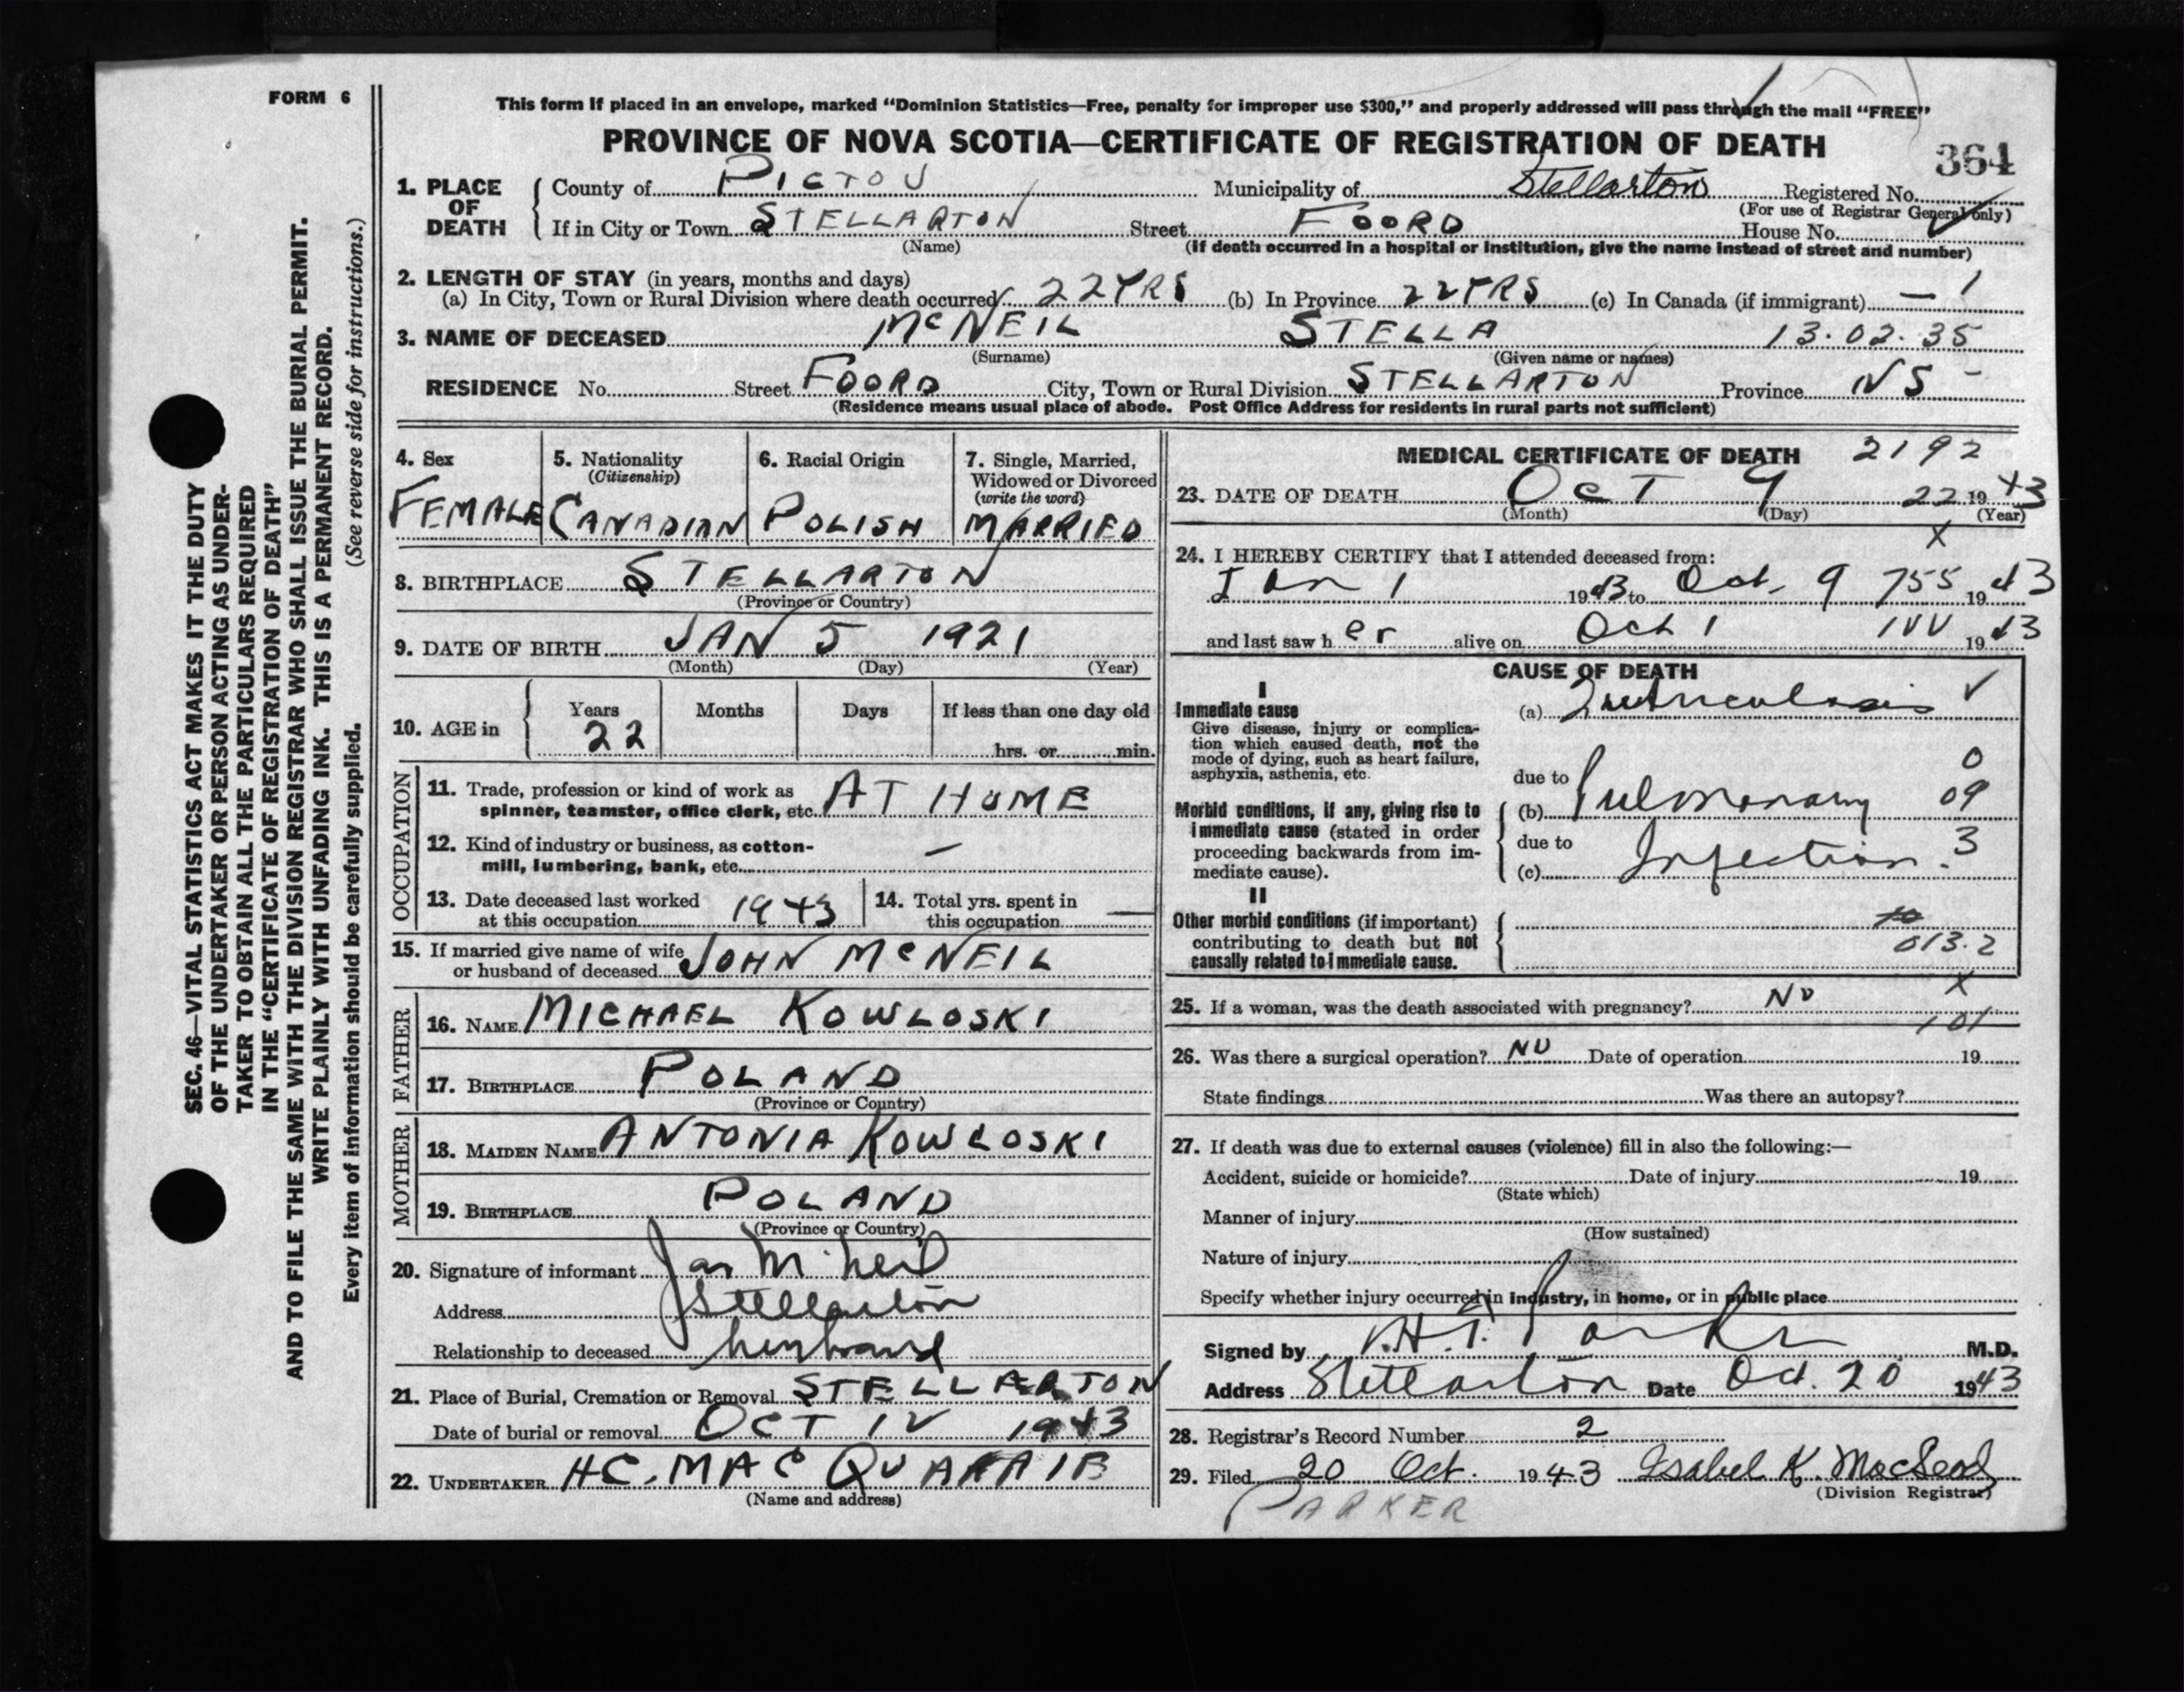 FORM 6
SEC. 46—VITAL STATISTICS ACT MAKES IT THE DUTY
OF THE UNDERTAKER OR PERSON ACTING AS UNDER-
TAKER TO OBTAIN ALL THE PARTICULARS REQUIRED
IN THE "CERTIFICATE OF REGISTRATION OF DEATH"
AND TO FILE THE SAME WITH THE DIVISION REGISTRAR WHO SHALL ISSUE THE BURIAL PERMIT.
WRITE PLAINLY WITH UNFADING INK. THIS IS A PERMANENT RECORD.
Every item of information should be carefully supplied. (See reverse side for instructions.)
This form if placed in an envelope, marked "Dominion Statistics—Free, penalty for improper use $300," and properly addressed will pass through the mail "FREE"
PROVINCE OF NOVA SCOTIA—CERTIFICATE OF REGISTRATION OF DEATH
364
1. PLACE OF DEATH County of PICTOU Municipality of Stellarton Registered No.
(For use of Registrar General only)
If in City or Town STELLARTON Street FOORD House No.
(Name) (If death occurred in a hospital or institution, give the name instead of street and number)
2. LENGTH OF STAY (in years, months and days)
(a) In City, Town or Rural Division where death occurred 22 YRS (b) In Province 22 YRS (c) In Canada (if immigrant) — 1
3. NAME OF DECEASED McNEIL STELLA 13.02.35
(Surname) (Given name or names)
RESIDENCE No. Street FOORD City, Town or Rural Division STELLARTON Province NS -
(Residence means usual place of abode. Post Office Address for residents in rural parts not sufficient)
4. Sex
FEMALE
5. Nationality
(Citizenship)
CANADIAN
6. Racial Origin
POLISH
7. Single, Married,
Widowed or Divorced
(write the word)
MARRIED
8. BIRTHPLACE STELLARTON
(Province or Country)
9. DATE OF BIRTH JAN 5 1921
(Month) (Day) (Year)
10. AGE in Years Months Days If less than one day old
22 hrs. or min.
OCCUPATION
11. Trade, profession or kind of work as
spinner, teamster, office clerk, etc. AT HOME
12. Kind of industry or business, as cotton-
mill, lumbering, bank, etc. —
13. Date deceased last worked
at this occupation 1943
14. Total yrs. spent in
this occupation —
15. If married give name of wife
or husband of deceased JOHN McNEIL
FATHER
16. NAME MICHAEL KOWLOSKI
17. BIRTHPLACE POLAND
(Province or Country)
MOTHER
18. MAIDEN NAME ANTONIA KOWLOSKI
19. BIRTHPLACE POLAND
(Province or Country)
20. Signature of informant Jas McNeil
Address Stellarton
Relationship to deceased husband
21. Place of Burial, Cremation or Removal STELLARTON
Date of burial or removal OCT 12 1943
22. UNDERTAKER HC. MAC QUARRIE
(Name and address)
MEDICAL CERTIFICATE OF DEATH 2192
23. DATE OF DEATH OCT 9 22 1943
(Month) (Day) (Year)
X
24. I HEREBY CERTIFY that I attended deceased from:
Jan 1 1943 to Oct. 9 755 1943
and last saw her alive on Oct 1 1943
CAUSE OF DEATH
I
Immediate cause
Give disease, injury or complica-
tion which caused death, not the
mode of dying, such as heart failure,
asphyxia, asthenia, etc.
(a) Tuberculosis ✓
due to 0
Morbid conditions, if any, giving rise to
immediate cause (stated in order
proceeding backwards from im-
mediate cause).
(b) Pulmonary 09
due to 3
(c) Infection.
II
Other morbid conditions (if important)
contributing to death but not
causally related to immediate cause.
10
013.2
25. If a woman, was the death associated with pregnancy? NO X
101
26. Was there a surgical operation? NO Date of operation 19
State findings Was there an autopsy?
27. If death was due to external causes (violence) fill in also the following:—
Accident, suicide or homicide? Date of injury 19
(State which)
Manner of injury
(How sustained)
Nature of injury
Specify whether injury occurred in industry, in home, or in public place
Signed by Parker M.D.
Address Stellarton Date Oct. 20 1943
28. Registrar's Record Number 2
29. Filed 20 Oct. 1943 Isabel K. MacLeod
(Division Registrar)
PARKER